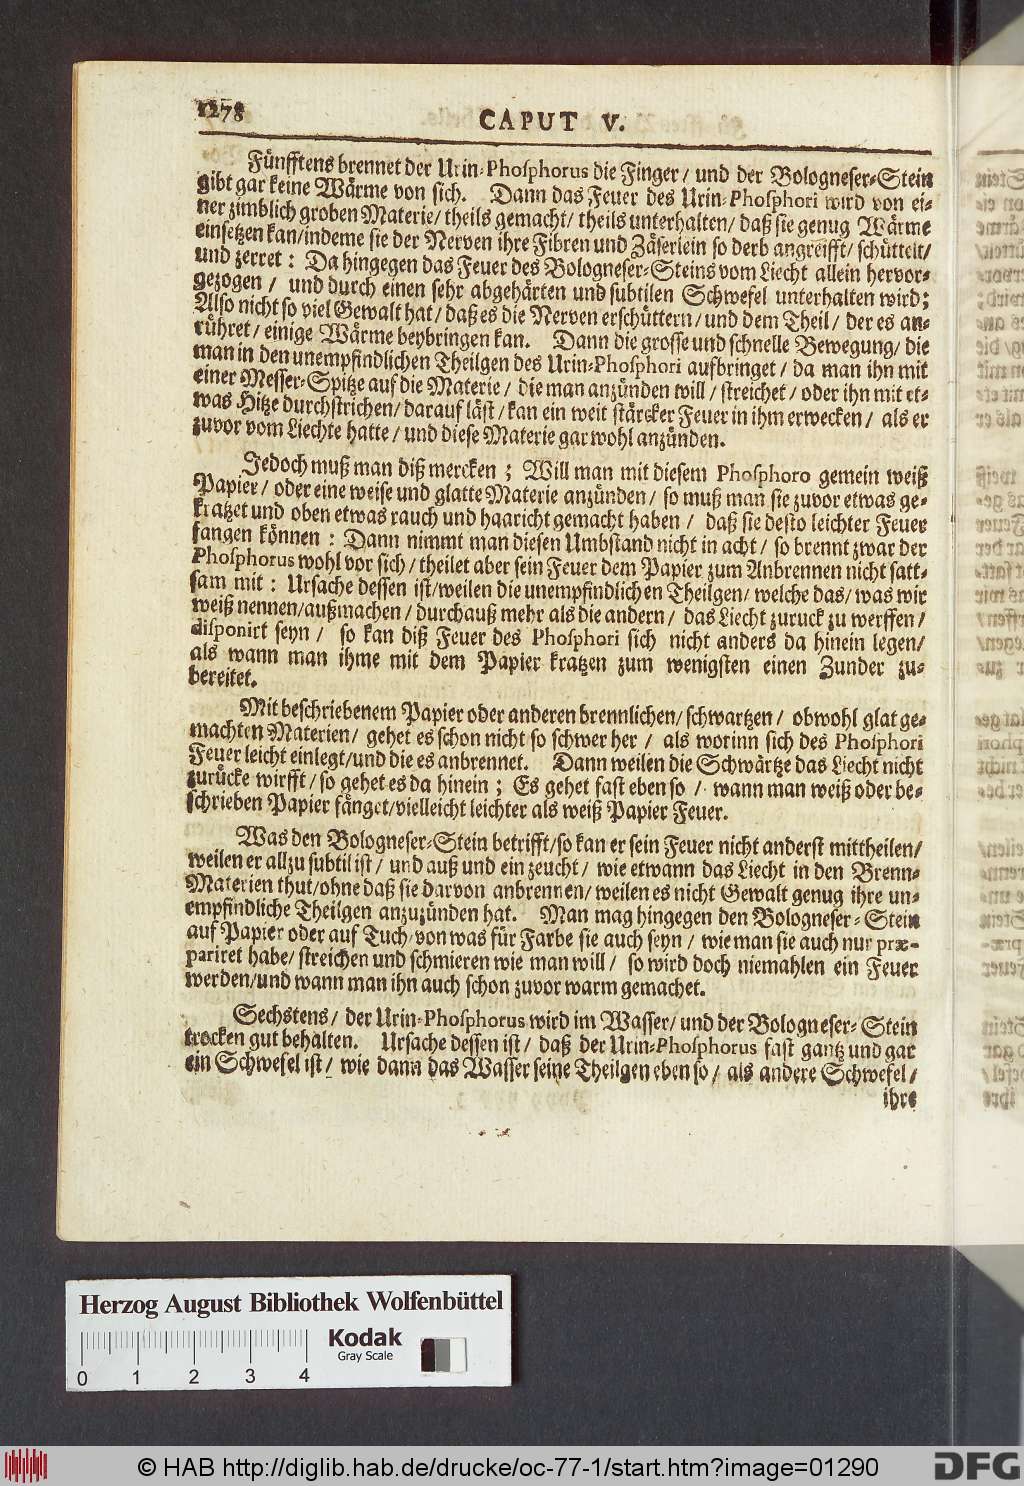 1278
CAPUT V.
Fünfftens brennet der Urin-Phosphorus die Finger/ und der Bologneser-Stein
gibt gar keine Wärme von sich. Dann das Feuer des Urin-Phosphori wird von ei-
ner zimblich groben Materie/ theils gemacht/ theils unterhalten/ daß sie genug Wärme
einsetzen kan/ indeme sie der Nerven ihre Fibren und Zäserlein so derb angreifft/ schüttelt/
und zerret: Da hingegen das Feuer des Bologneser-Steins vom Liecht allein hervor-
gezogen / und durch einen sehr abgehärten und subtilen Schwefel unterhalten wird;
Also nicht so viel Gewalt hat/ daß es die Nerven erschüttern/ und dem Theil/ der es an-
rühret/ einige Wärme beybringen kan. Dann die grosse und schnelle Bewegung/ die
man in den unempfindlichen Theilgen des Urin-Phosphori aufbringet/ da man ihn mit
einer Messer-Spitze auf die Materie/ die man anzünden will/ streichet/ oder ihn mit et-
was Hitze durchstrichen/ darauf läst/ kan ein weit stärcker Feuer in ihm erwecken/ als er
zuvor vom Liechte hatte/ und diese Materie gar wohl anzünden.
Jedoch muß man diß mercken; Will man mit diesem Phosphoro gemein weiß
Papier/ oder eine weise und glatte Materie anzünden/ so muß man sie zuvor etwas ge-
kratzet und oben etwas rauch und haaricht gemacht haben/ daß sie desto leichter Feuer
fangen können: Dann nimmt man diesen Umbstand nicht in acht/ so brennt zwar der
Phosphorus wohl vor sich/ theilet aber sein Feuer dem Papier zum Anbrennen nicht satt-
sam mit: Ursache dessen ist/ weilen die unempfindlichen Theilgen/ welche das/ was wir
weiß nennen/ außmachen/ durchauß mehr als die andern/ das Liecht zuruck zu werffen/
disponirt seyn/ so kan diß Feuer des Phosphori sich nicht anders da hinein legen/
als wann man ihme mit dem Papier kratzen zum wenigsten einen Zunder zu-
bereitet.
Mit beschriebenem Papier oder anderen brennlichen/ schwartzen/ obwohl glat ge-
machten Materien/ gehet es schon nicht so schwer her/ als worinn sich des Phosphori
Feuer leicht einlegt/ und die es anbrennet. Dann weilen die Schwärtze das Liecht nicht
zurücke wirfft/ so gehet es da hinein; Es gehet fast eben so/ wann man weiß oder be-
schrieben Papier fänget/ vielleicht leichter als weiß Papier Feuer.
Was den Bologneser-Stein betrifft/ so kan er sein Feuer nicht anderst mittheilen/
weilen er allzu subtil ist/ und auß und ein zeucht/ wie etwann das Liecht in den Brenn-
Materien thut/ ohne daß sie darvon anbrennen/ weilen es nicht Gewalt genug ihre un-
empfindliche Theilgen anzuzünden hat. Man mag hingegen den Bologneser-Stein
auf Papier oder auf Tuch/ von was für Farbe sie auch seyn/ wie man sie auch nur præ-
pariret habe/ streichen und schmieren wie man will/ so wird doch niemahlen ein Feuer
werden/ und wann man ihn auch schon zuvor warm gemachet.
Sechstens/ der Urin-Phosphorus wird im Wasser/ und der Bologneser-Stein
trocken gut behalten. Ursache dessen ist/ daß der Urin-Phosphorus fast gantz und gar
ein Schwefel ist/ wie dann das Wasser seine Theilgen eben so/ als andere Schwefel/
ihre
Herzog August Bibliothek Wolfenbüttel
Kodak
Gray Scale
0 1 2 3 4
© HAB http://diglib.hab.de/drucke/oc-77-1/start.htm?image=01290
DFG